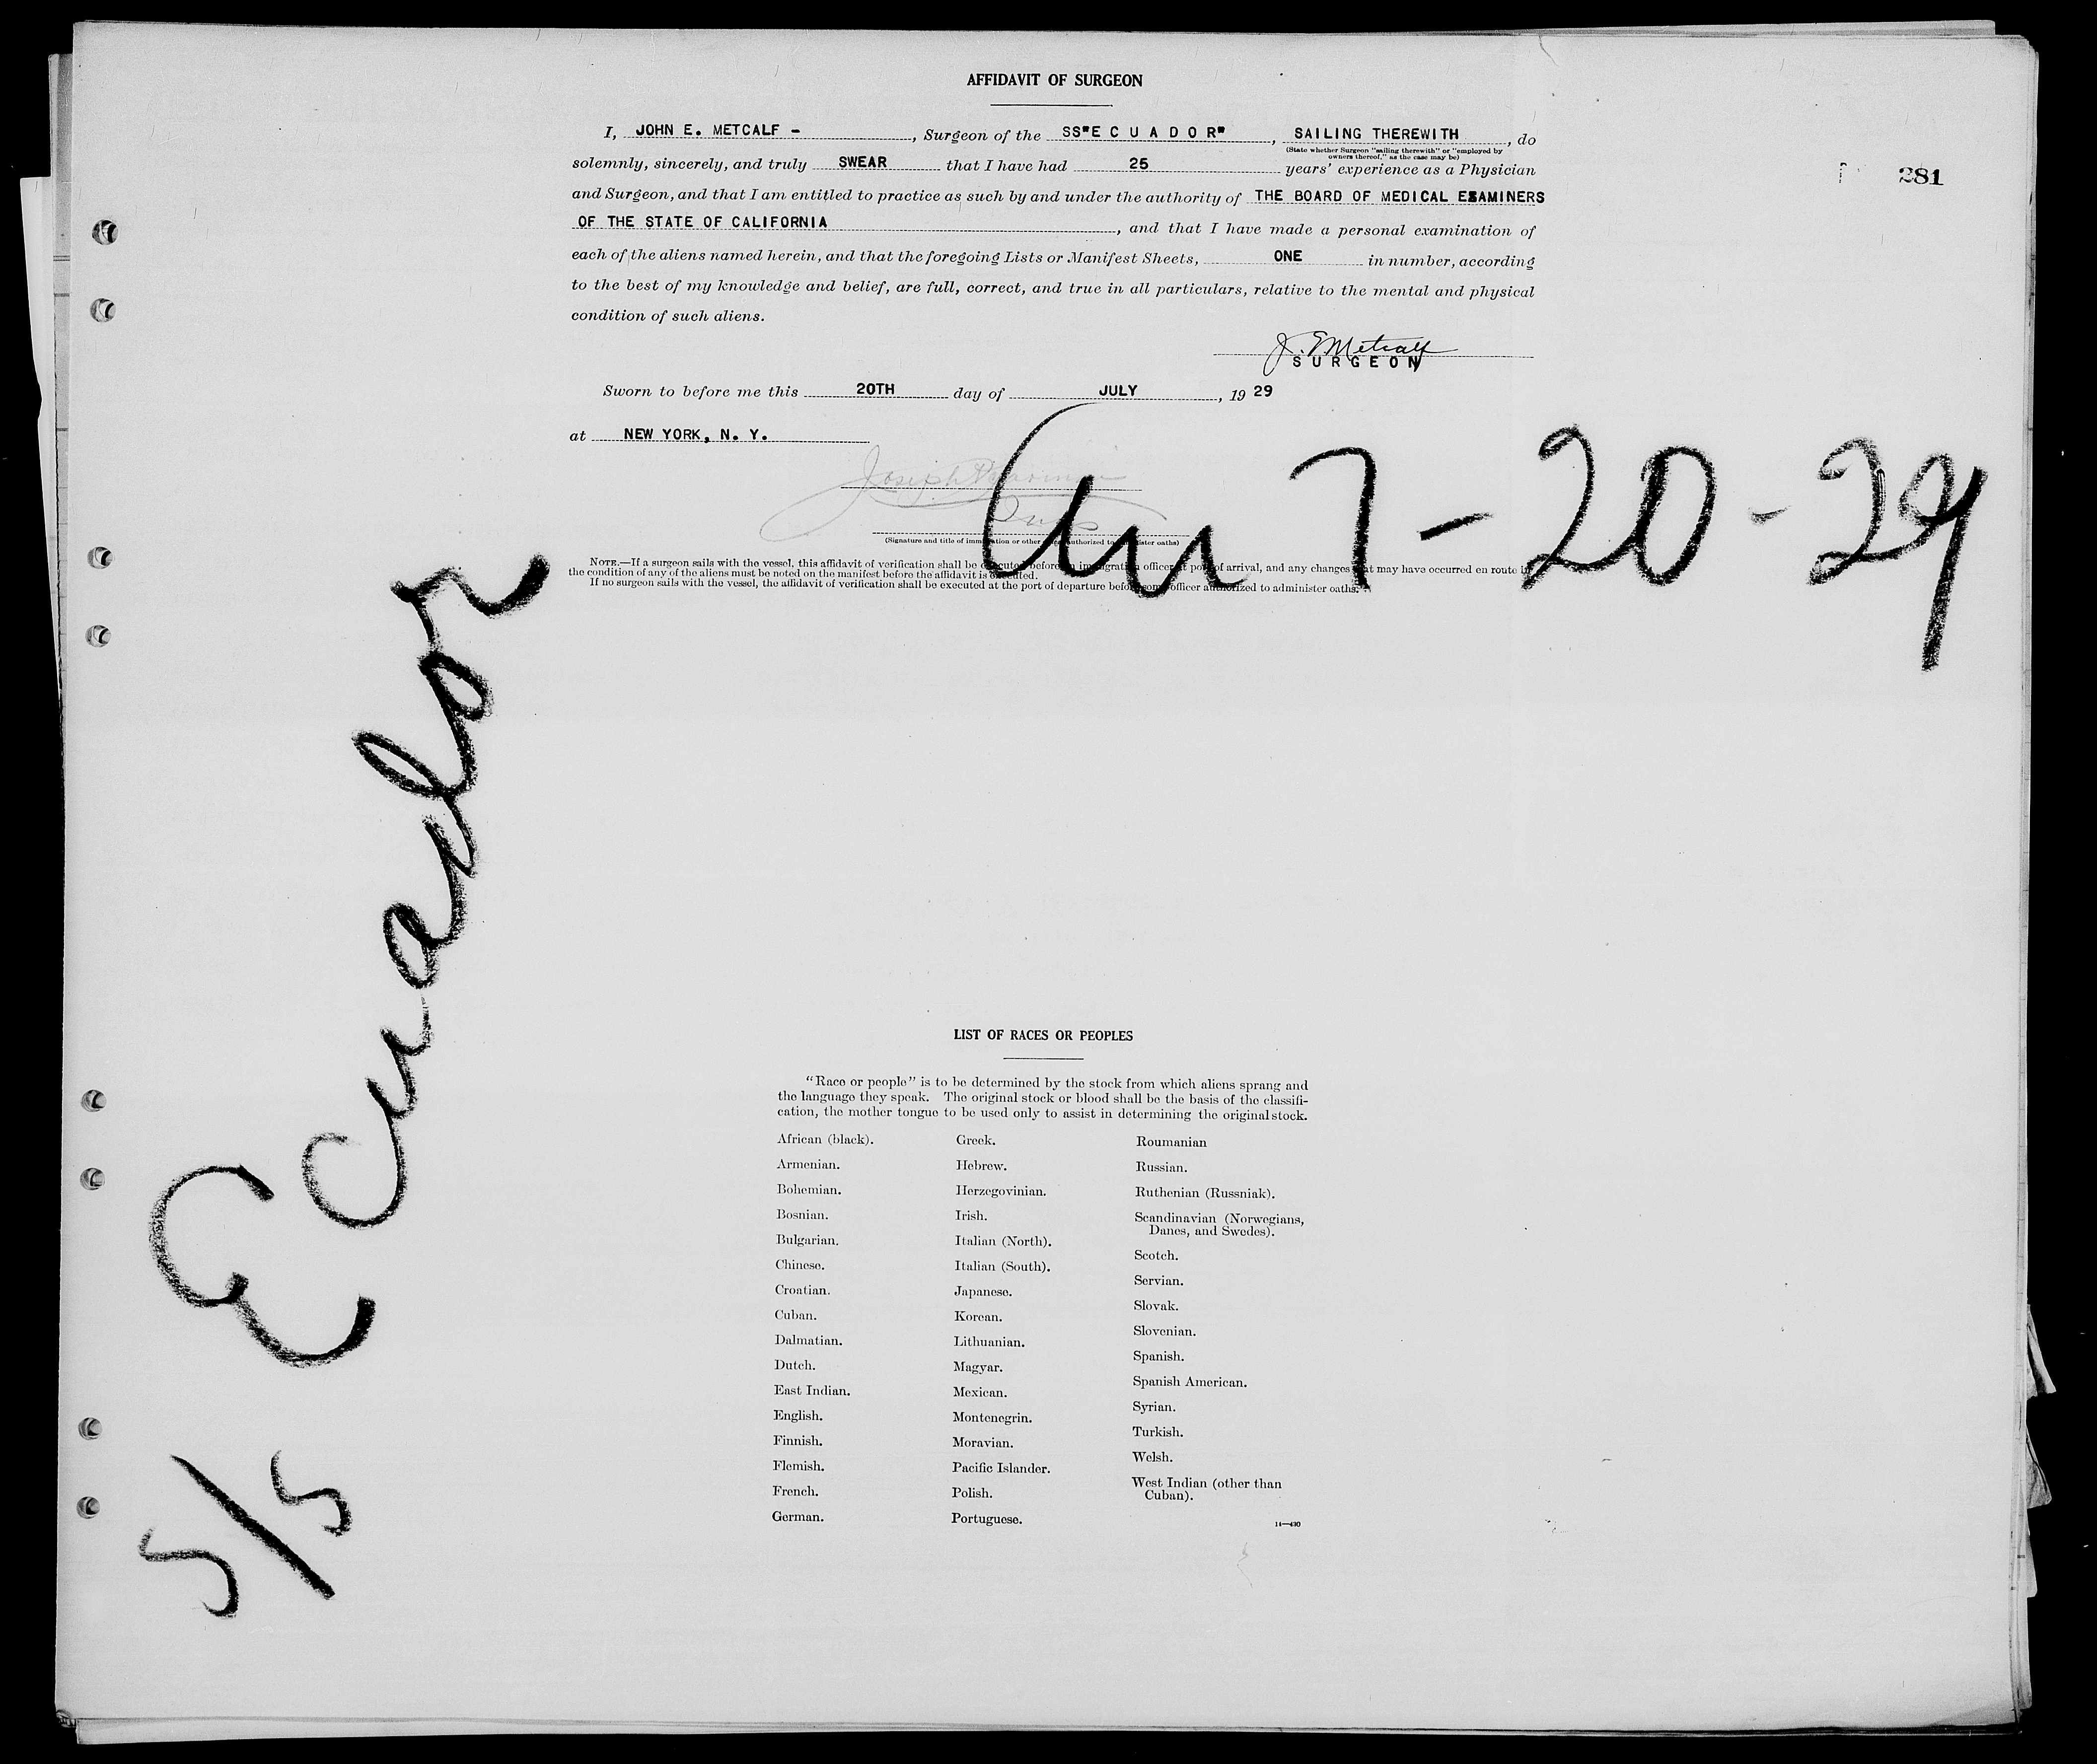 AFFIDAVIT OF SURGEON
I, JOHN E. METCALF - , Surgeon of the SS"E C U A D O R" , SAILING THEREWITH , do
(State whether Surgeon "sailing therewith" or "employed by
owners thereof," as the case may be)
solemnly, sincerely, and truly SWEAR that I have had 25 years' experience as a Physician
281
and Surgeon, and that I am entitled to practice as such by and under the authority of THE BOARD OF MEDICAL EXAMINERS
OF THE STATE OF CALIFORNIA , and that I have made a personal examination of
each of the aliens named herein, and that the foregoing Lists or Manifest Sheets, ONE in number, according
to the best of my knowledge and belief, are full, correct, and true in all particulars, relative to the mental and physical
condition of such aliens.
J. E Metcalf
SURGEON
Sworn to before me this 20TH day of JULY , 19 29
at NEW YORK, N. Y.
Joseph
7-20-29
(Signature and title of immigration or other officer authorized to administer oaths)
NOTE.—If a surgeon sails with the vessel, this affidavit of verification shall be executed before an immigration officer at port of arrival, and any changes that may have occurred en route in
the condition of any of the aliens must be noted on the manifest before the affidavit is executed.
If no surgeon sails with the vessel, the affidavit of verification shall be executed at the port of departure before some officer authorized to administer oaths.
S/S Ecuador
LIST OF RACES OR PEOPLES
"Race or people" is to be determined by the stock from which aliens sprang and
the language they speak. The original stock or blood shall be the basis of the classifi-
cation, the mother tongue to be used only to assist in determining the original stock.
African (black).
Armenian.
Bohemian.
Bosnian.
Bulgarian.
Chinese.
Croatian.
Cuban.
Dalmatian.
Dutch.
East Indian.
English.
Finnish.
Flemish.
French.
German.
Greek.
Hebrew.
Herzegovinian.
Irish.
Italian (North).
Italian (South).
Japanese.
Korean.
Lithuanian.
Magyar.
Mexican.
Montenegrin.
Moravian.
Pacific Islander.
Polish.
Portuguese.
Roumanian
Russian.
Ruthenian (Russniak).
Scandinavian (Norwegians,
Danes, and Swedes).
Scotch.
Servian.
Slovak.
Slovenian.
Spanish.
Spanish American.
Syrian.
Turkish.
Welsh.
West Indian (other than
Cuban).
14—430